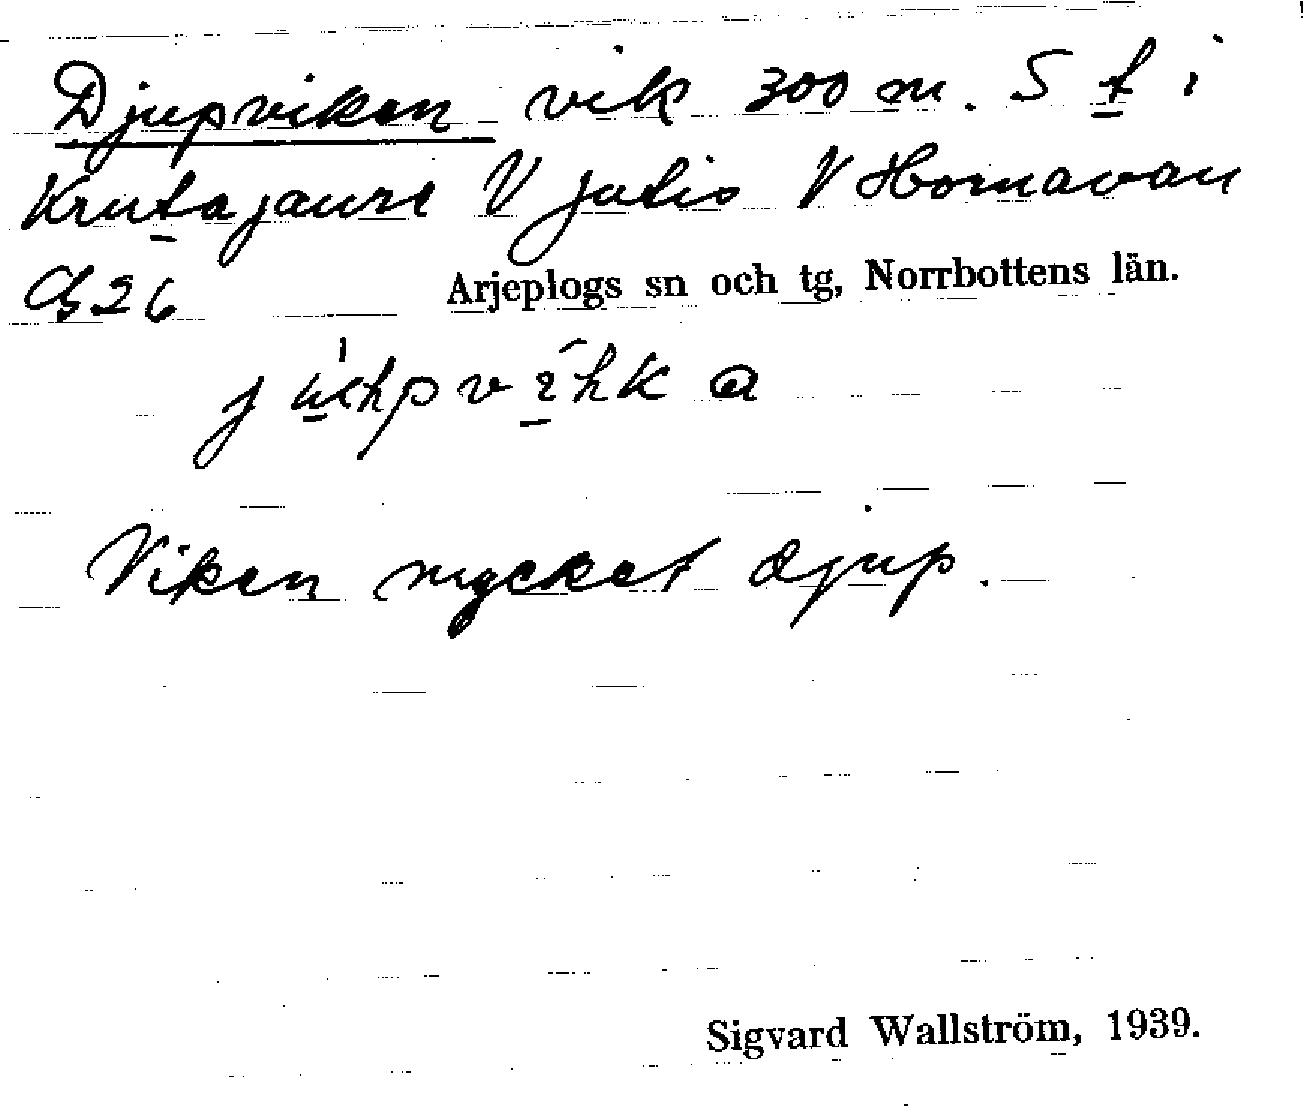 Djupviken vik 300 m. S t i
Krutajaure V Jutis V Hornavan
26 Arjeplogs sn och tg, Norrbottens län.
Viken mycket djup.
Sigvard Wallström, 1939.